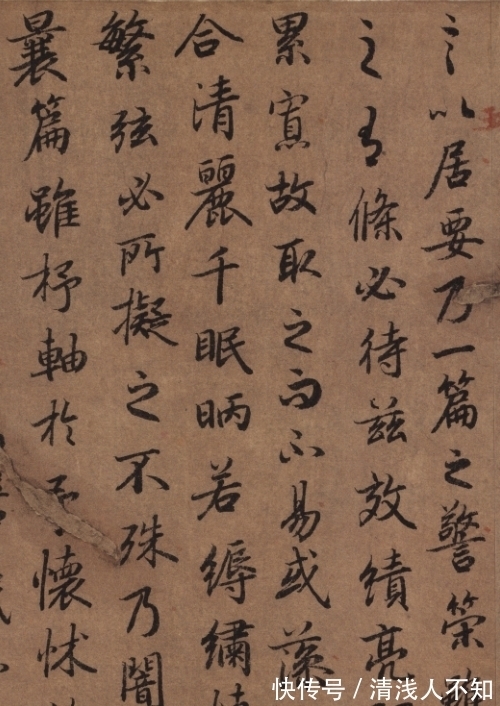 言以居要乃一篇之警策雖
之有條必待茲效績亮
累寡故取之而不易或藻
合清麗千眠昞若縟繡
繁弦必所擬之不殊乃闇
曩篇雖杼軸於予懷怵
快传号 / 清浅人不知